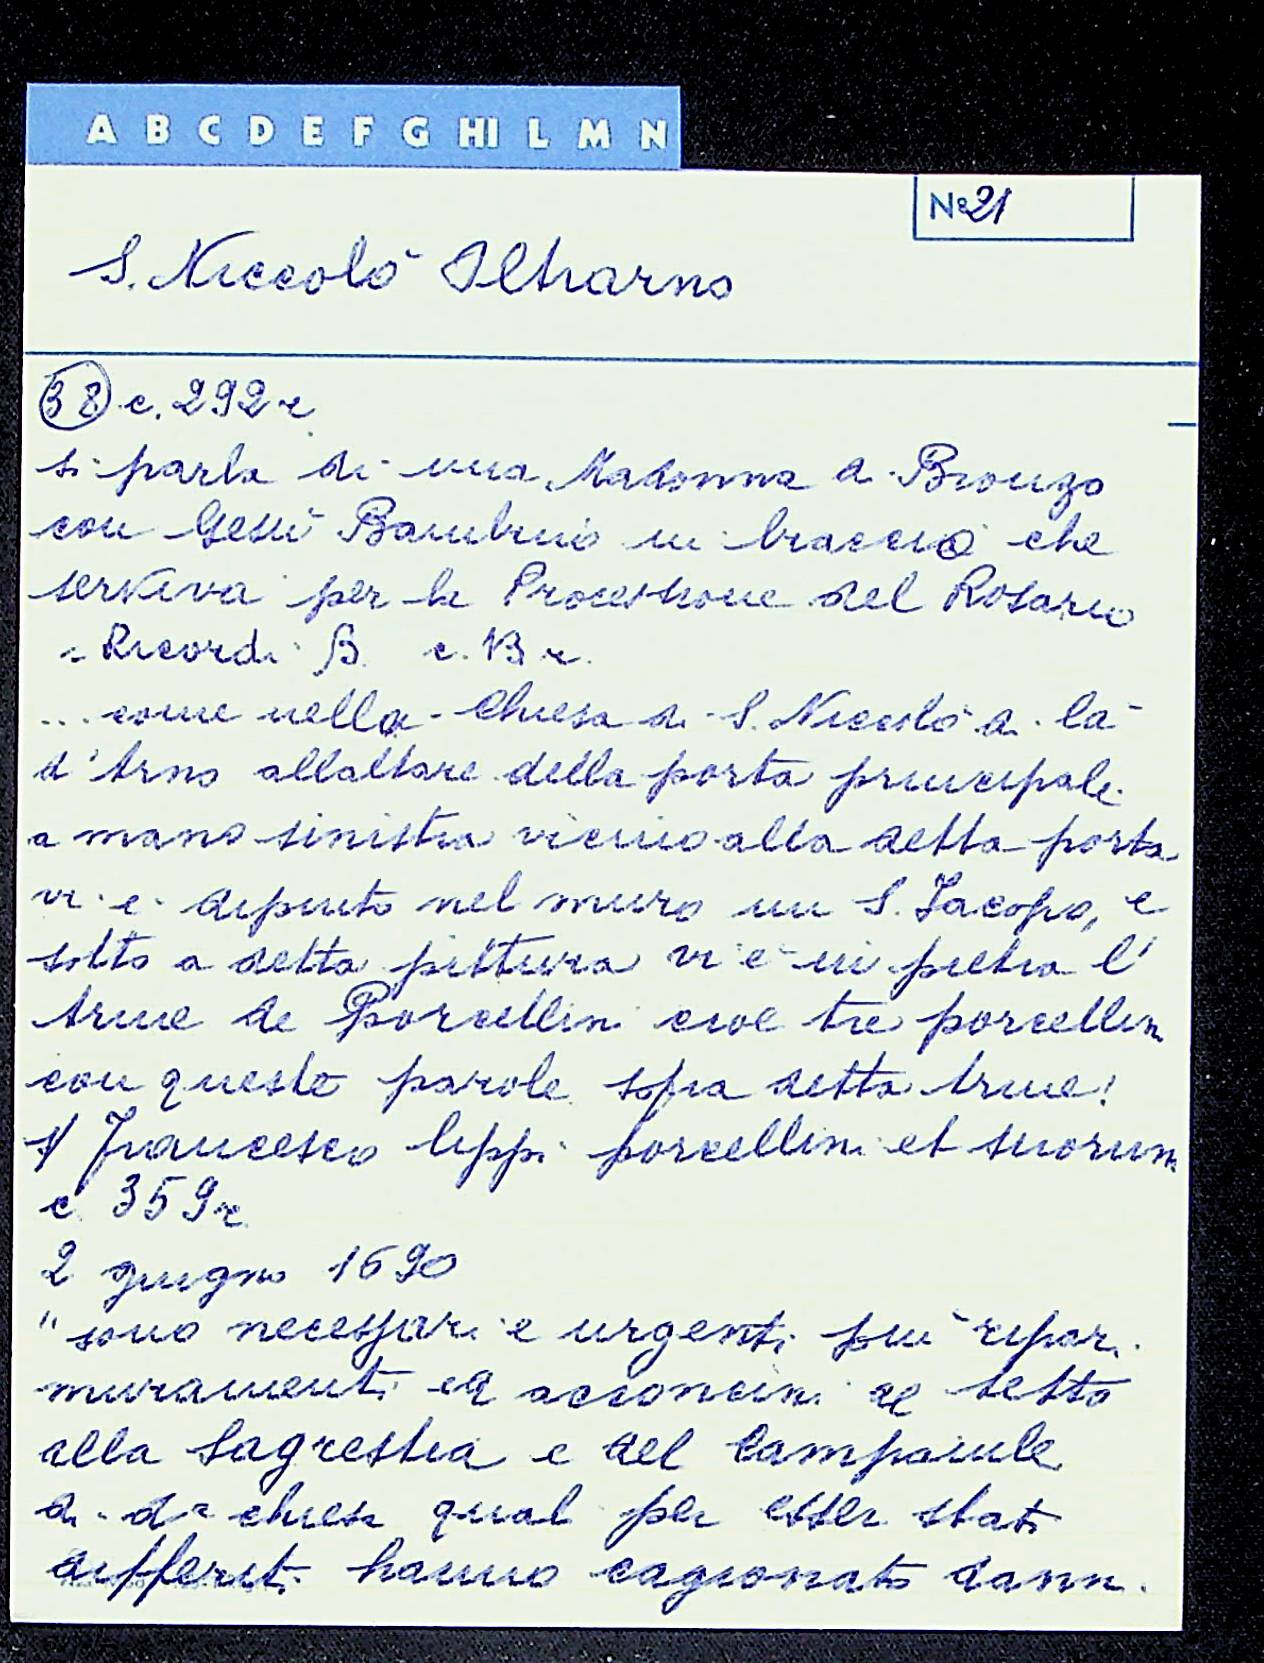 A B C D E F G HI L M N
No 21
S. Niccolò Oltrarno
38 c. 292 r
si parla di una Madonna di Bronzo
con Gesù Bambino in braccio che
serviva per la Processione del Rosario
Ricordi B c. 13 r.
... come nella Chiesa di S. Niccolò di là
d'Arno allaltare della porta principale
a mano sinistra vicino alla detta porta
vi è dipinto nel muro un S. Jacopo, e
sotto a detta pittura vi è in pietra l'
Arme de Porcellini cioè tre porcellini
con queste parole sopra detta Arme:
S/ Francesco lippi porcellini et suorum
c. 359 r
2 giugno 1690
" sono necessari e urgenti più ripari
muramenti ed acconcimi al tetto
alla Sagrestia e del Campanile
di da chiesa quali per esser stati
differiti hanno cagionato danni